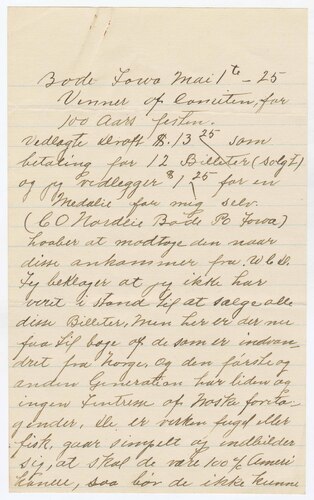 Bode Iowa Mai 1te - 25
Venner af Comiteen, for
100 Aars festen.
Vedlagte Draft $13 25 som
betaling for 12 Billeter (solgt)
og jeg vedlegger $1 25 for en
Medalie for mig selv.
(C O Nordlie Bode R Iowa)
haaber at modtage den naar
disse ankommer fra
Jeg beklager at jeg ikke har
verit i stand til at sælge alle
disse Billeter, Men her er der nu
faa til bage af de som er indvan
dret fra Norge, Og den første og
anden Generation har liden og
ingen Intrese af Noske foreta
gender, De er verken fugl eller
fisk, gaar simpelt og indbilder
sig, at skal de være 100% Ameri
kanere, saa bør de ikke kunne